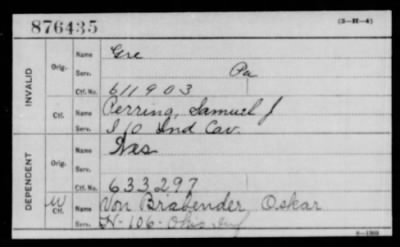 876435 (3-H-4)
INVALID
Orig. Name Gre
Serv. Pa
Ctf. No. 611903
Ctf. Name Perring, Samuel J
Serv. I 10 Ind Cav.
DEPENDENT
Orig. Name Nas
Serv.
Ctf. No. 633297
W Ctf. Name Von Brabender Oskar
Serv. H-106-Ohio Inf